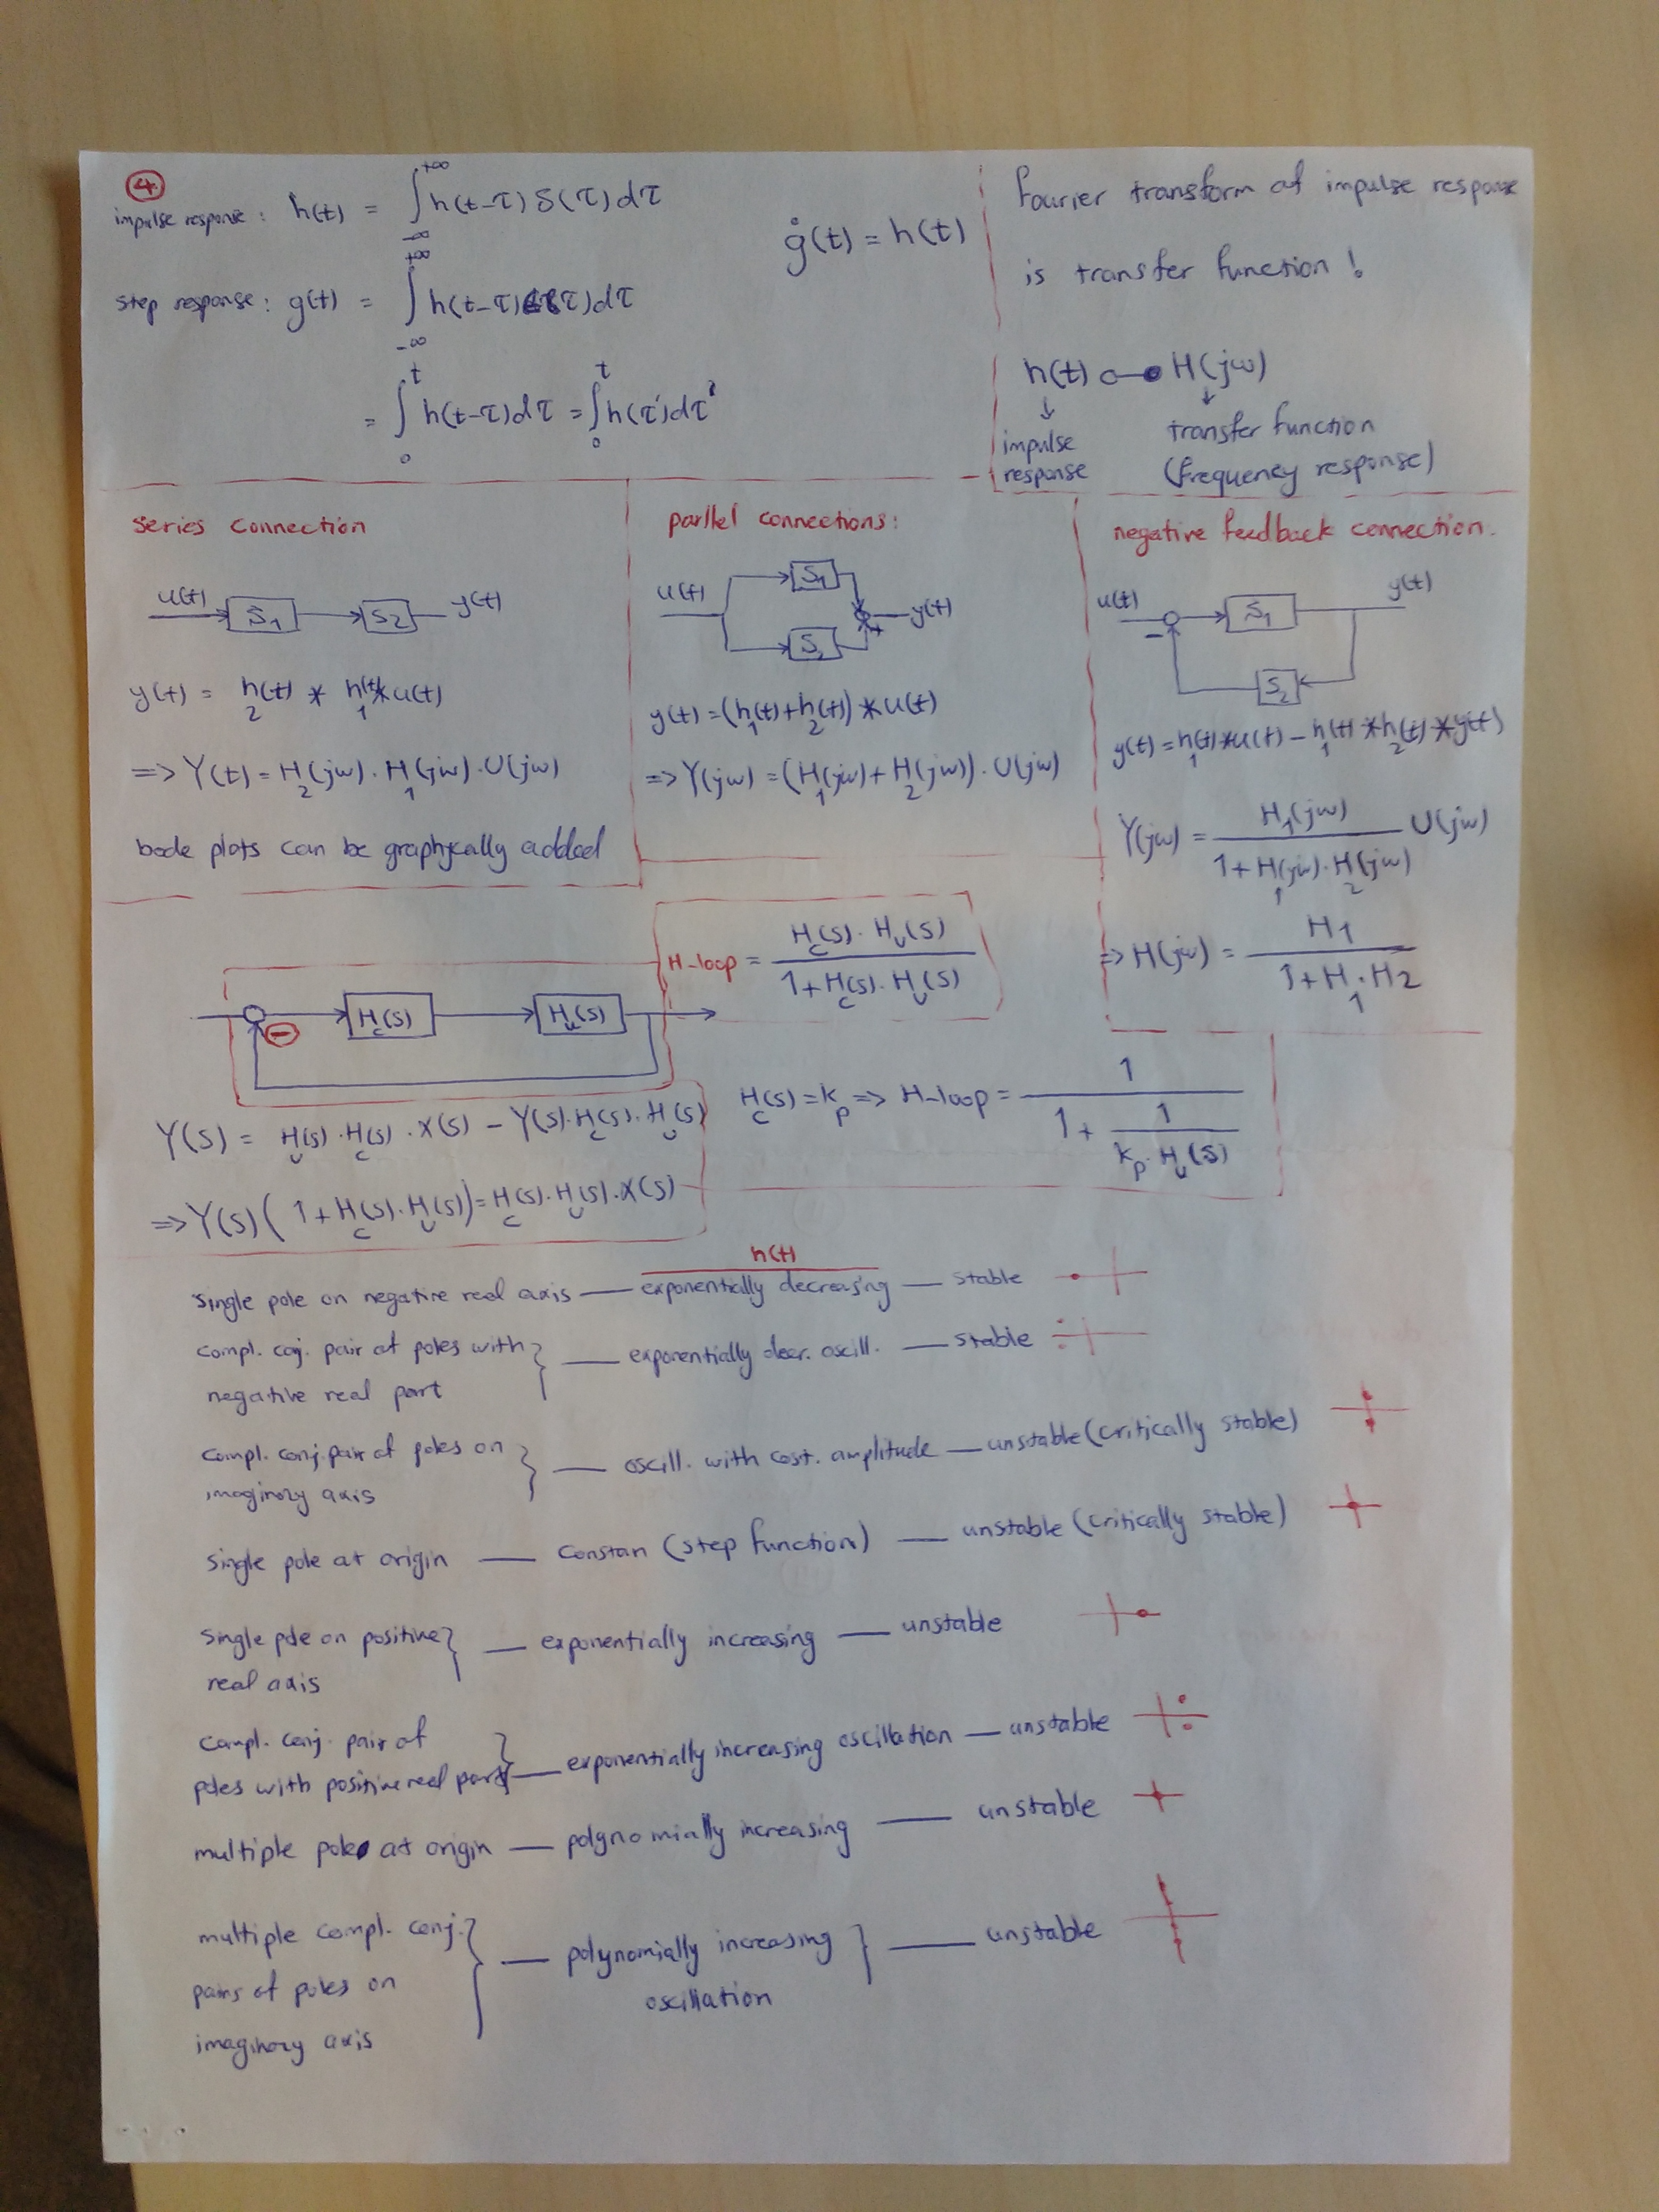 4
impulse response: h(t) = ∫_{-∞}^{+∞} h(t-τ) δ(τ) dτ
ġ(t) = h(t)
step response: g(t) = ∫_{-∞}^{+∞} h(t-τ) (τ) dτ
= ∫_0^t h(t-τ) dτ = ∫_0^t h(τ') dτ'
Fourier transform of impulse response
is transfer function!
h(t) ○—● H(jω)
↓ ↓
impulse response
transfer function
(frequency response)
series connection
u(t) → S1 → S2 — y(t)
y(t) = h2(t) * h1(t) * u(t)
=> Y(t) = H2(jω) . H1(jω) . U(jω)
bode plots can be graphycally added
parllel connections:
u(t) S1 y(t)
S +
y(t) = (h1(t) + h2(t)) * u(t)
=> Y(jω) = (H1(jω) + H2(jω)) . U(jω)
negative feedback connection.
u(t) S1 y(t)
- S2
y(t) = h1(t) * u(t) - h1(t) * h2(t) * y(t)
Y(jω) = H1(jω) / (1 + H1(jω) . H2(jω)) U(jω)
=> H(jω) = H1 / (1 + H1 . H2)
H_loop = Hc(s) . Hu(s) / (1 + Hc(s) . Hu(s))
Hc(s) Hu(s)
-
Y(s) = Hu(s) . Hc(s) . X(s) - Y(s) . Hc(s) . Hu(s)
=> Y(s) ( 1 + Hc(s) . Hu(s) ) = Hc(s) . Hu(s) . X(s)
Hc(s) = kp => H_loop = 1 / (1 + 1 / (kp . Hu(s)))
h(t)
single pole on negative real axis — exponentially decreasing — stable
compl. coj. pair of poles with
negative real part } — exponentially decr. oscill. — stable
compl. conj. pair of poles on
imaginary axis } — oscill. with cost. amplitude — unstable (critically stable)
single pole at origin — constan (step function) — unstable (critically stable)
single pole on positive
real axis } — exponentially increasing — unstable
compl. conj. pair of
poles with positive real part } — exponentially increasing oscillation — unstable
multiple pole at origin — polynomially increasing — unstable
multiple compl. conj.
pairs of poles on
imaginary axis } — polynomially increasing
oscillation } — unstable